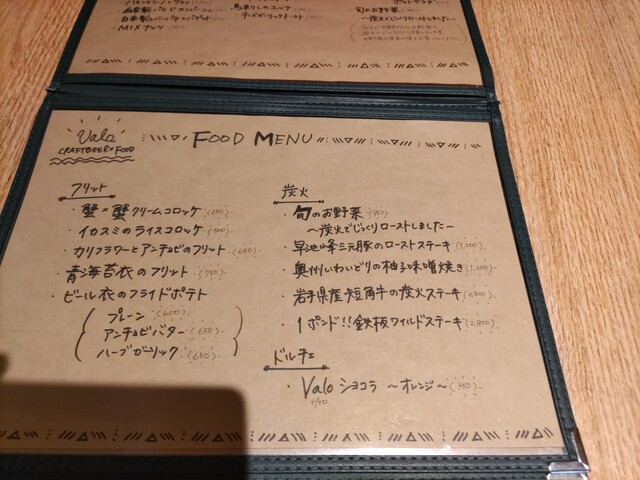 馬刺しのユッケ
チーズガーリックトースト
MIXナッツ
旬のお野菜
〜炭火でじっくりローストしました〜
Valo
CRAFTBEER×FOOD
FOOD MENU
フリット
・蟹×蟹クリームコロッケ (680)
・イカスミのライスコロッケ
・カリフラワーとアンチョビのフリット (680)
・青海苔衣のフリット (780)
・ビール衣のフライドポテト
プレーン (600)
アンチョビバター (650)
ハーブガーリック (650)
炭火
・旬のお野菜
〜炭火でじっくりローストしました〜
・早池峰三元豚のローストステーキ (1,200)
・奥州いわいどりの柚子味噌焼き (1,200)
・岩手県産短角牛の炭火ステーキ (2,800)
・1ポンド!!鉄板ワイルドステーキ (2,900)
ドルチェ
・Valo ショコラ 〜オレンジ〜